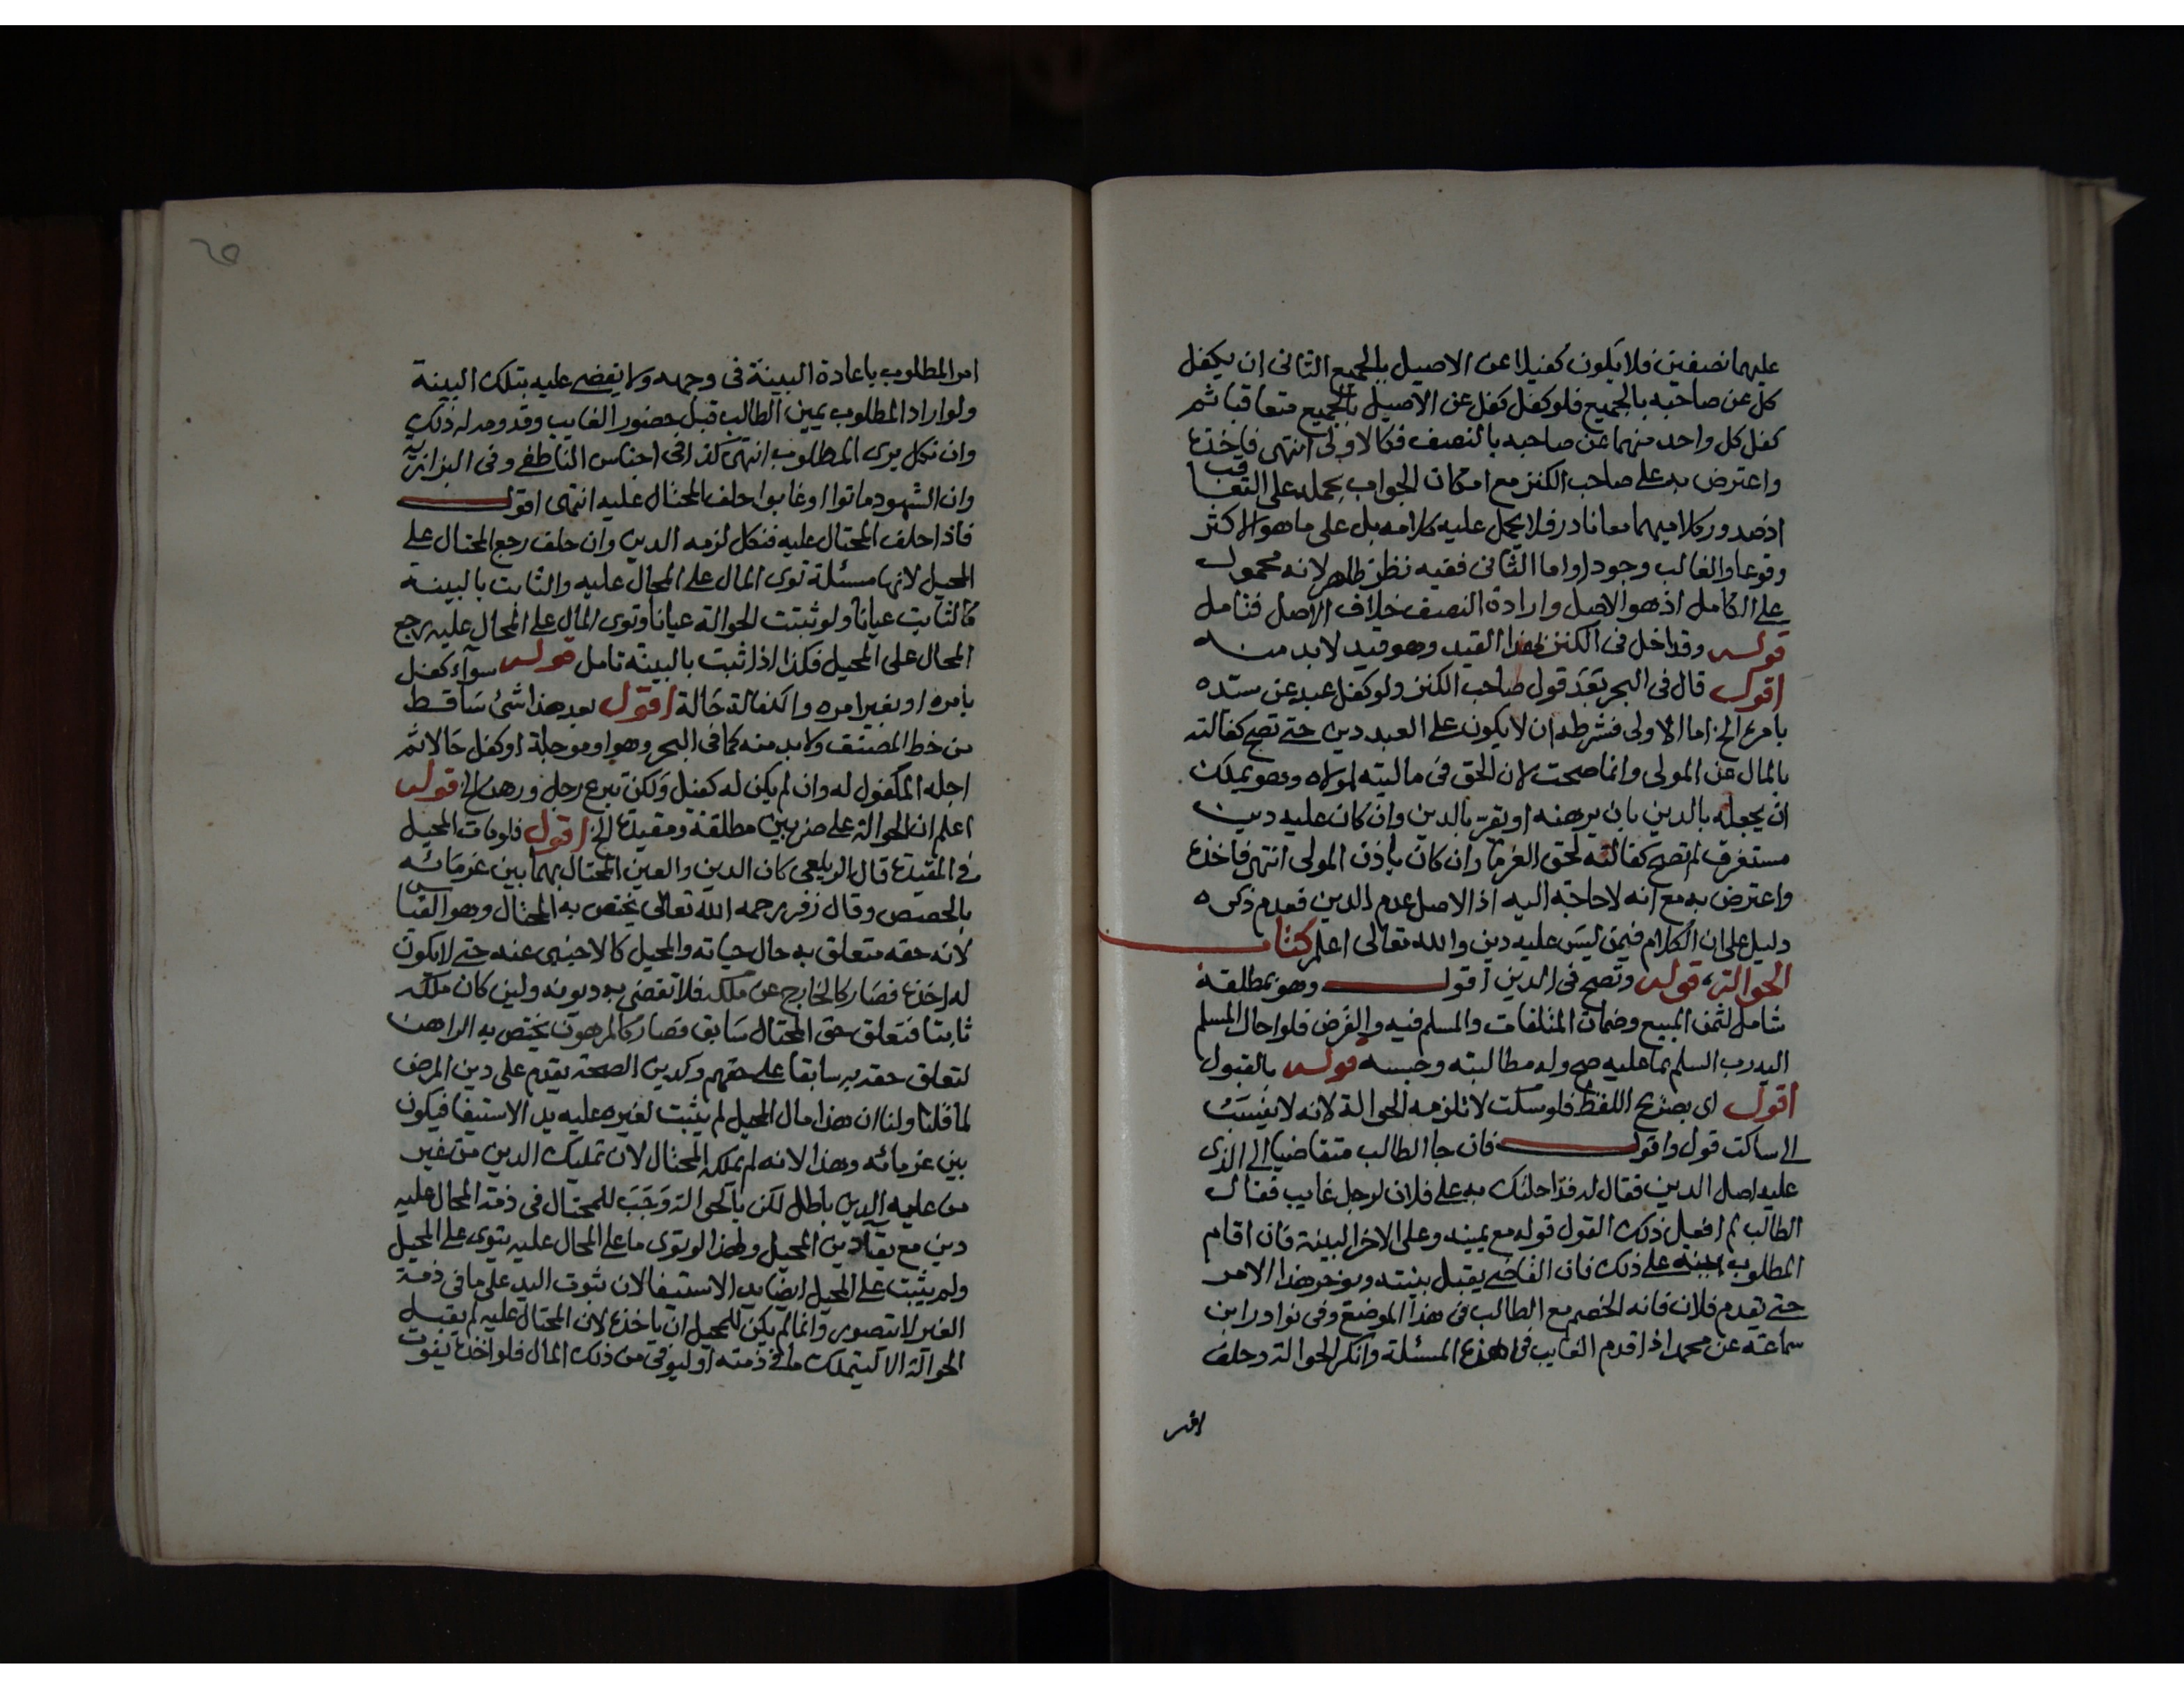 عليهما نصفين فلا يكون كفيلا عن الاصيل بالجميع الثانى ان يكفل
كل عن صاحبه بالجميع فلو كفل كفل عن الاصيل بالجميع متعاقبا ثم
كفل كل واحد منهما عن صاحبه بالنصف فكالاولى انتهى فاخذه
واعترض به على صاحب الكنز مع امكان الجواب بحمله على التعاقب
اذ صدور كلاميهما معا نادر فلا يحمل عليه كلامه بل على ما هو الاكثر
وقوعا والغالب وجودا واما الثانى ففيه نظر ظاهر لانه محمول
على الكامل اذ هو الاصل وارادة النصف خلاف الاصل فتامل
قوله وقد اخل فى الكنز بهذا القيد وهو قيد لابد منه
اقول قال فى البحر بعد قول صاحب الكنز ولو كفل عبد عن سيده
بامره الخ اما الاولى فشرطه ان لا يكون على العبد دين حتى تصح كفالته
بالمال عن المولى وانما صحت لان الحق فى ماليته لمولاه وهو يملك
ان يجعله بالدين بان يرهنه او يقر بالدين وان كان عليه دين
مستغرق لم تصح كفالته لحق الغرما وان كان باذن المولى انتهى فاخذه
واعترض به مع انه لا حاجة اليه اذ الاصل عدم الدين فعدم ذكره
دليل على ان الكلام فيمن ليس عليه دين والله تعالى اعلم كتاب
الحوالة، قوله وتصح فى الدين اقول وهو بمطلقه
شامل لثمن المبيع وضمان المتلفات والمسلم فيه والقرض فلو احال المسلم
اليه رب السلم بما عليه صح وله مطالبته وحبسه قوله بالقبول
اقول اى بصريح اللفظ فلو سكت لا تلزمه الحوالة لانه لا ينسب
الى ساكت قول واقول فان جا الطالب متقاضيا الى الذى
عليه اصل الدين فقال له قد احلتك به على فلان لرجل غايب فقال
الطالب لم افعل ذلك القول قوله مع يمينه وعلى الاخر البينة فان اقام
المطلوب بينه على ذلك فان القاضى يقبل بينته ويؤخر هذا الامر
حتى يقدم فلان فانه الخصم مع الطالب فى هذا الموضع وفى نوادر ابن
سماعة عن محمد اذا قدم الغايب فى هذه المسئلة وانكر الحوالة وحلف
امر
امر المطلوب باعادة البينة فى وجهه ولا يقضى عليه بتلك البينة
ولو اراد المطلوب يمين الطالب قبل حضور الغايب وقدومه له ذلك
وان نكل برى المطلوب انتهى كذا فى اجناس الناطفى وفى البزازية
وان الشهود ماتوا او غابوا حلف المحتال عليه انتهى اقول
فاذا حلف المحتال عليه فنكل لزمه الدين وان حلف رجع المحتال على
المحيل لانها مسئلة توى المال على المحال عليه والثابت بالبينة
كالثابت عيانا ولو ثبتت الحوالة عيانا وتوى المال على المحال عليه يرجع
المحال على المحيل فكذا اذا ثبت بالبينة تامل قوله سوآء كفل
بامره او بغير امره والكفالة حالة اقول بعد هذا شئ ساقط
من خط المصنف ولابد منه كما فى البحر وهو او موجلة او كفل حالا ثم
اجله المكفول له وان لم يكن له كفيل ولكن تبرع رجل ورهن الخ قوله
اعلم ان الحوالة على ضربين مطلقة ومقيدة الخ اقول فلو مات المحيل
فى المقيدة قال الزيلعى كان الدين والعين المحتال بهما بين غرمائه
بالحصص وقال زفر رحمه الله تعالى يختص به المحتال وهو القياس
لانه حقه متعلق به حال حياته والمحيل كالاجنبى عنه حتى لا يكون
له اخذه فصار كالخارج عن ملكه فلا تقضى به ديونه ولين كان ملكه
ثابتا فتعلق حق المحتال سابق فصار كالمرهون يختص به الراهن
لتعلق حقه به سابقا على حقهم وكدين الصحة يقدم على دين المرض
لما قلنا ولنا ان هذا مال المحيل لم يثبت لغيره عليه يد الاستيفا فيكون
بين غرمائه وهذا لانه لم يملكه المحتال لان تمليك الدين من غير
من عليه الدين باطل لكن بالحوالة وجب للمحتال فى ذمة المحال عليه
دين مع بقآ دين المحيل ولهذا لو توى ما على المحال عليه يتوى على المحيل
ولم يثبت على المحيل ايضا يد الاستيفا لان ثبوت اليد على ما فى ذمة
الغير لا يتصور وانما لم يكن للمحيل ان ياخذه لان المحتال عليه لم يقبل
الحوالة الا ليتملك ما فى ذمته او ليوفى من ذلك المال فلو اخذه يفوت